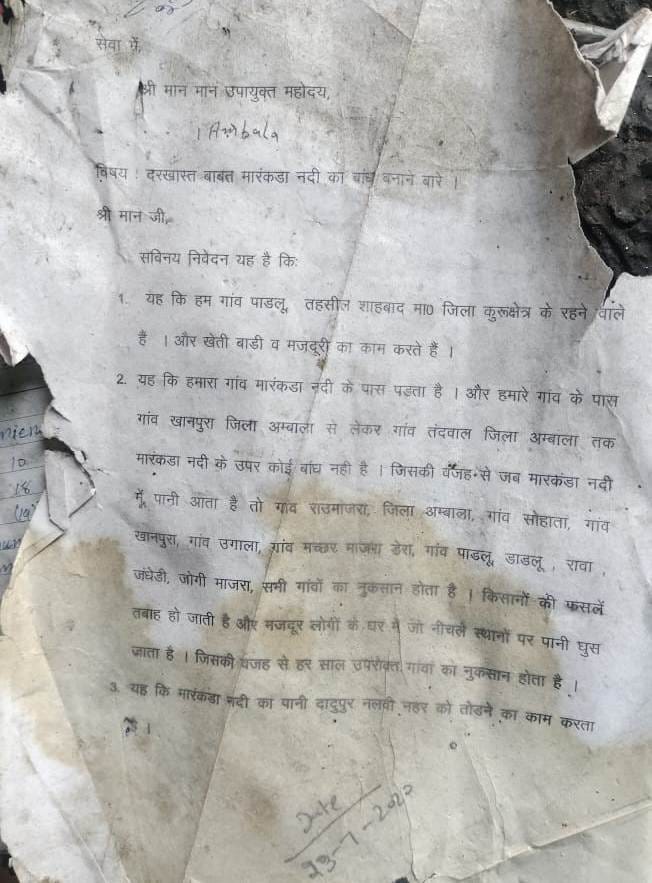 सेवा में,
श्री मान मान उपायुक्त महोदय,
Ambala
विषय : दरखास्त बाबत मारंकडा नदी का बांध बनाने बारे ।
श्री मान जी,
सविनय निवेदन यह है कि:
1. यह कि हम गांव पाडलू, तहसील शाहबाद मा0 जिला कुरूक्षेत्र के रहने वाले
है । और खेती बाडी व मजदूरी का काम करते हैं ।
2. यह कि हमारा गांव मारंकडा नदी के पास पडता है । और हमारे गांव के पास
गांव खानपुरा जिला अम्बाला से लेकर गांव तंदवाल जिला अम्बाला तक
मारंकडा नदी के उपर कोई बांध नही है । जिसकी वजह से जब मारकंडा नदी
में पानी आता है तो गांव राउमाजरा, जिला अम्बाला, गांव सोहाता, गांव
खानपुरा, गांव उगाला, गांव मच्छर माजरा डेरा, गांव पाडलू, डाडलू , रावा ,
जंधेडी, जोगी माजरा, सभी गांवों का नुकसान होता है । किसानों की फसलें
तबाह हो जाती है और मजदूर लोगों के घर में जो नीचले स्थानों पर पानी घुस
जाता है । जिसकी वजह से हर साल उपरोक्त गांवों का नुकसान होता है ।
3. यह कि मारंकडा नदी का पानी दादुपुर नलवी नहर को तोडने का काम करता
है ।
Date
10
18